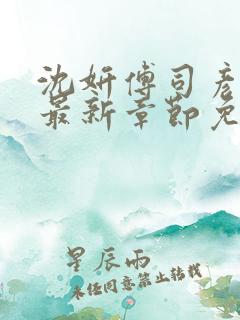 沈妍傅司彦
最新章節免
星辰雨
未经同意禁止转载